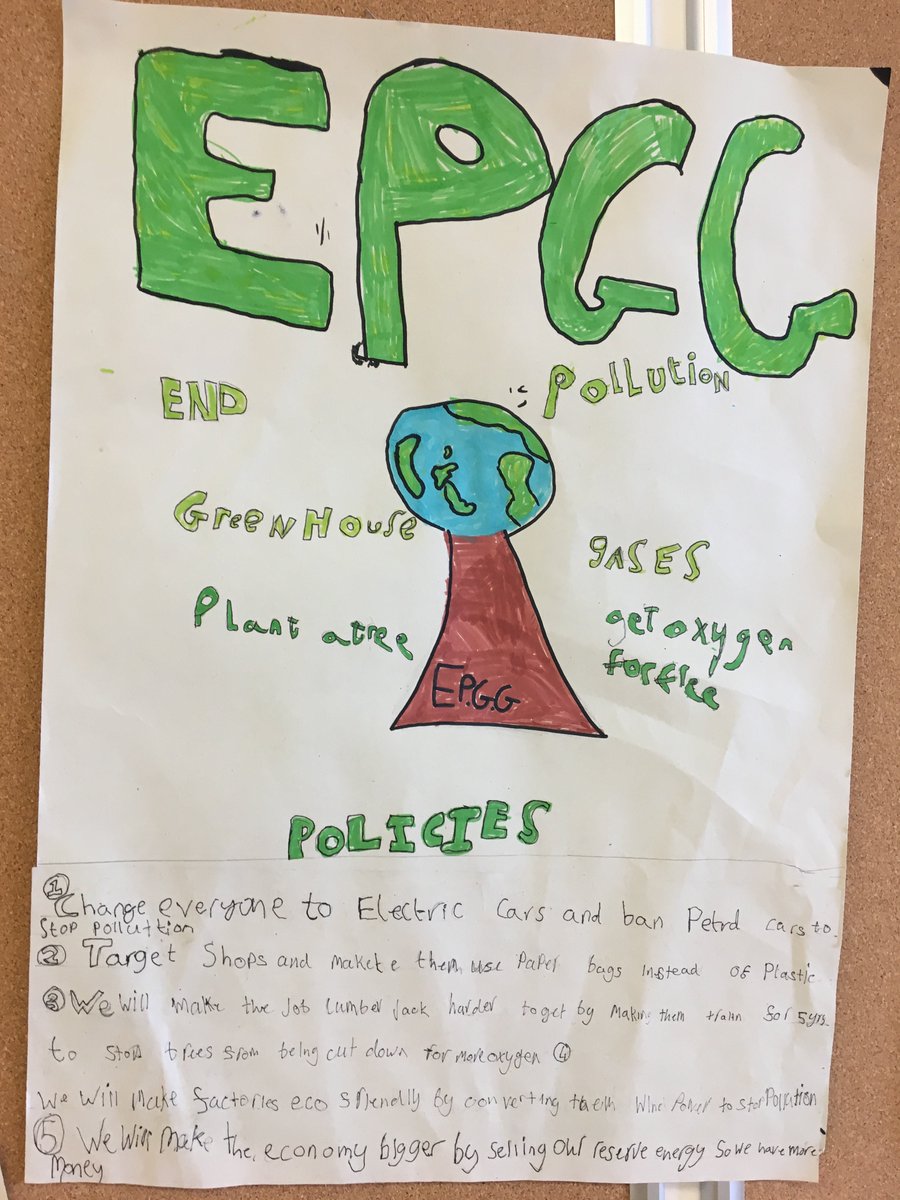 EPGG
END Pollution
GreenHouse gASES
Plant a tree get oxygen
for free
E.P.G.G
POLICIES
① Change everyone to Electric cars and ban Petrol cars to
stop pollution
② Target Shops and make them use Paper bags instead of Plastic
③ We will make the Job lumber Jack harder to get by Making them train for 5yrs
to stop trees from being cut down for more oxygen ④
We Will Make factories eco friendly by converting them Wind Power to stop Pollution
⑤ We Will Make the economy bigger by selling our reserve energy So we have more
Money